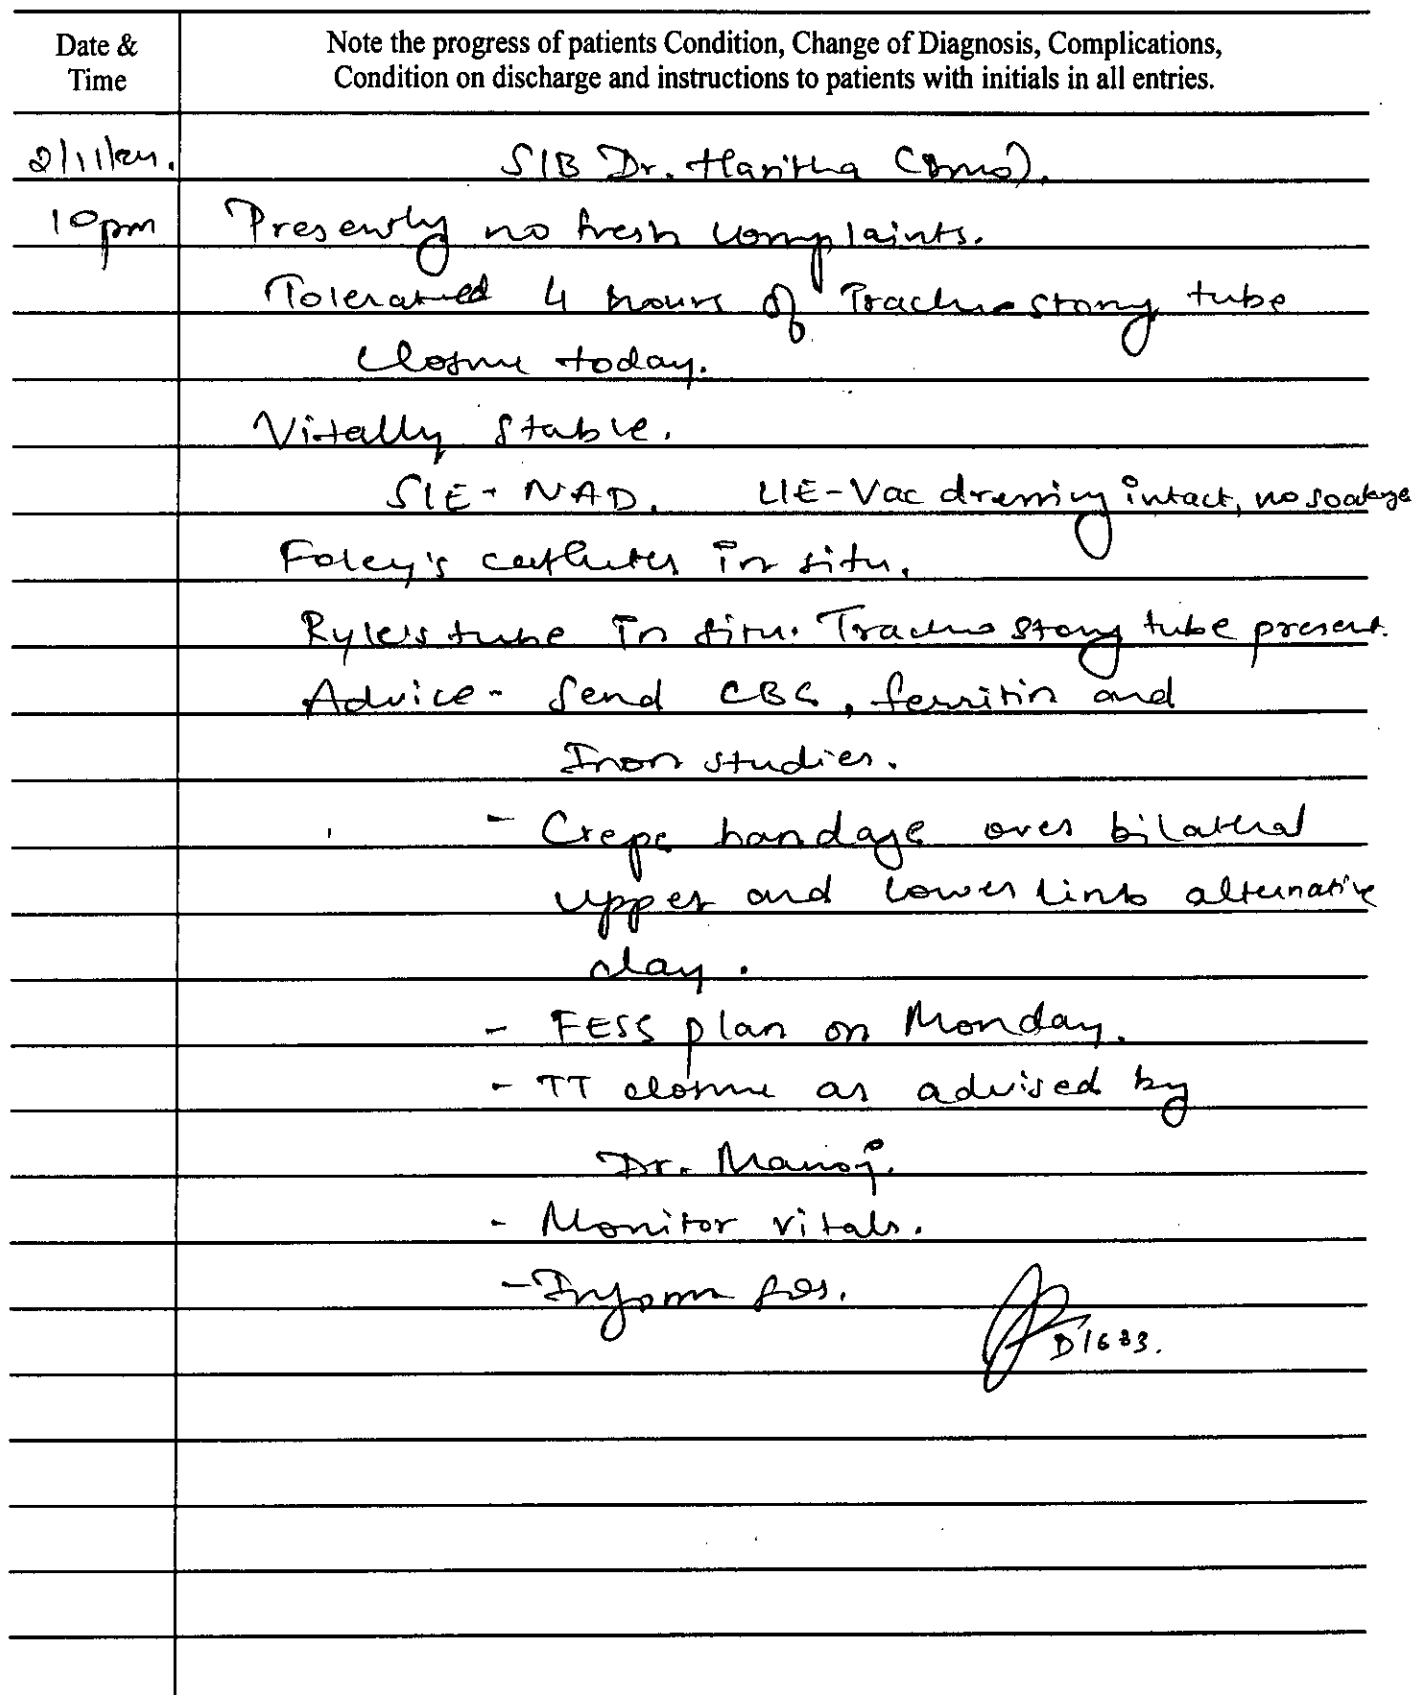 Date & Time
Note the progress of patients Condition, Change of Diagnosis, Complications,
Condition on discharge and instructions to patients with initials in all entries.
2/11/24. S/B Dr. Haritha (DMO).
10pm Presently no fresh complaints.
Tolerated 4 hours of Tracheostomy tube
closure today.
Vitally stable.
S/E - NAD. L/E - Vac dressing intact, no soakage
Foley's catheter in situ.
Ryle's tube in situ. Tracheostomy tube present.
Advice - Send CBC, ferritin and
Iron studies.
- Crepe bandage over bilateral
upper and lower limb alternative
day.
- FESS plan on Monday.
- TT closure as advised by
Dr. Manoj.
- Monitor vitals.
- Inform sos.
D1633.